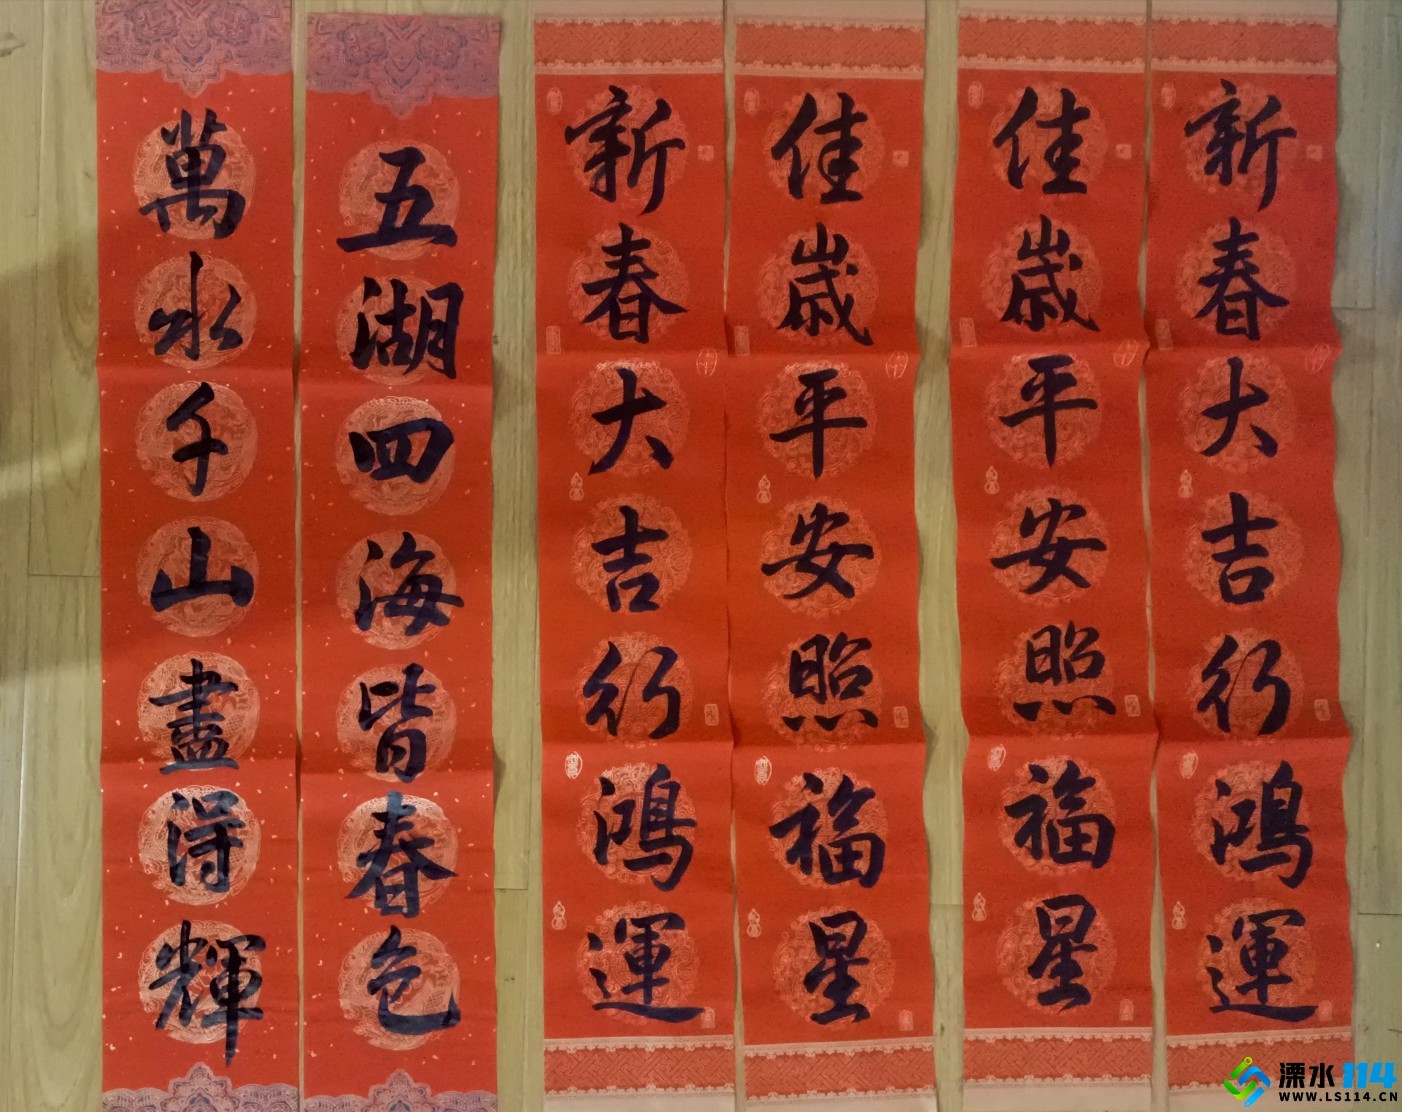 萬水千山盡得輝
五湖四海皆春色
新春大吉行鴻運
佳歲平安照福星
佳歲平安照福星
新春大吉行鴻運
溧水114
WWW.LS114.CN